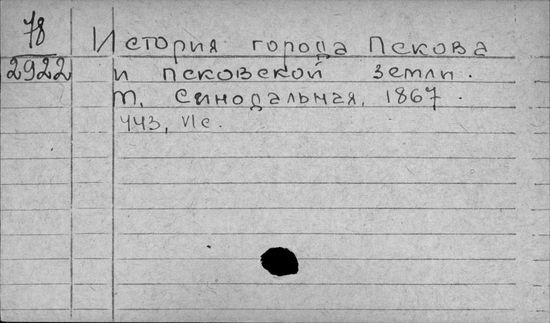 78
2922
История города Пскова
и псковской земли.
т. Синодальная, 1867.
443, VI с.